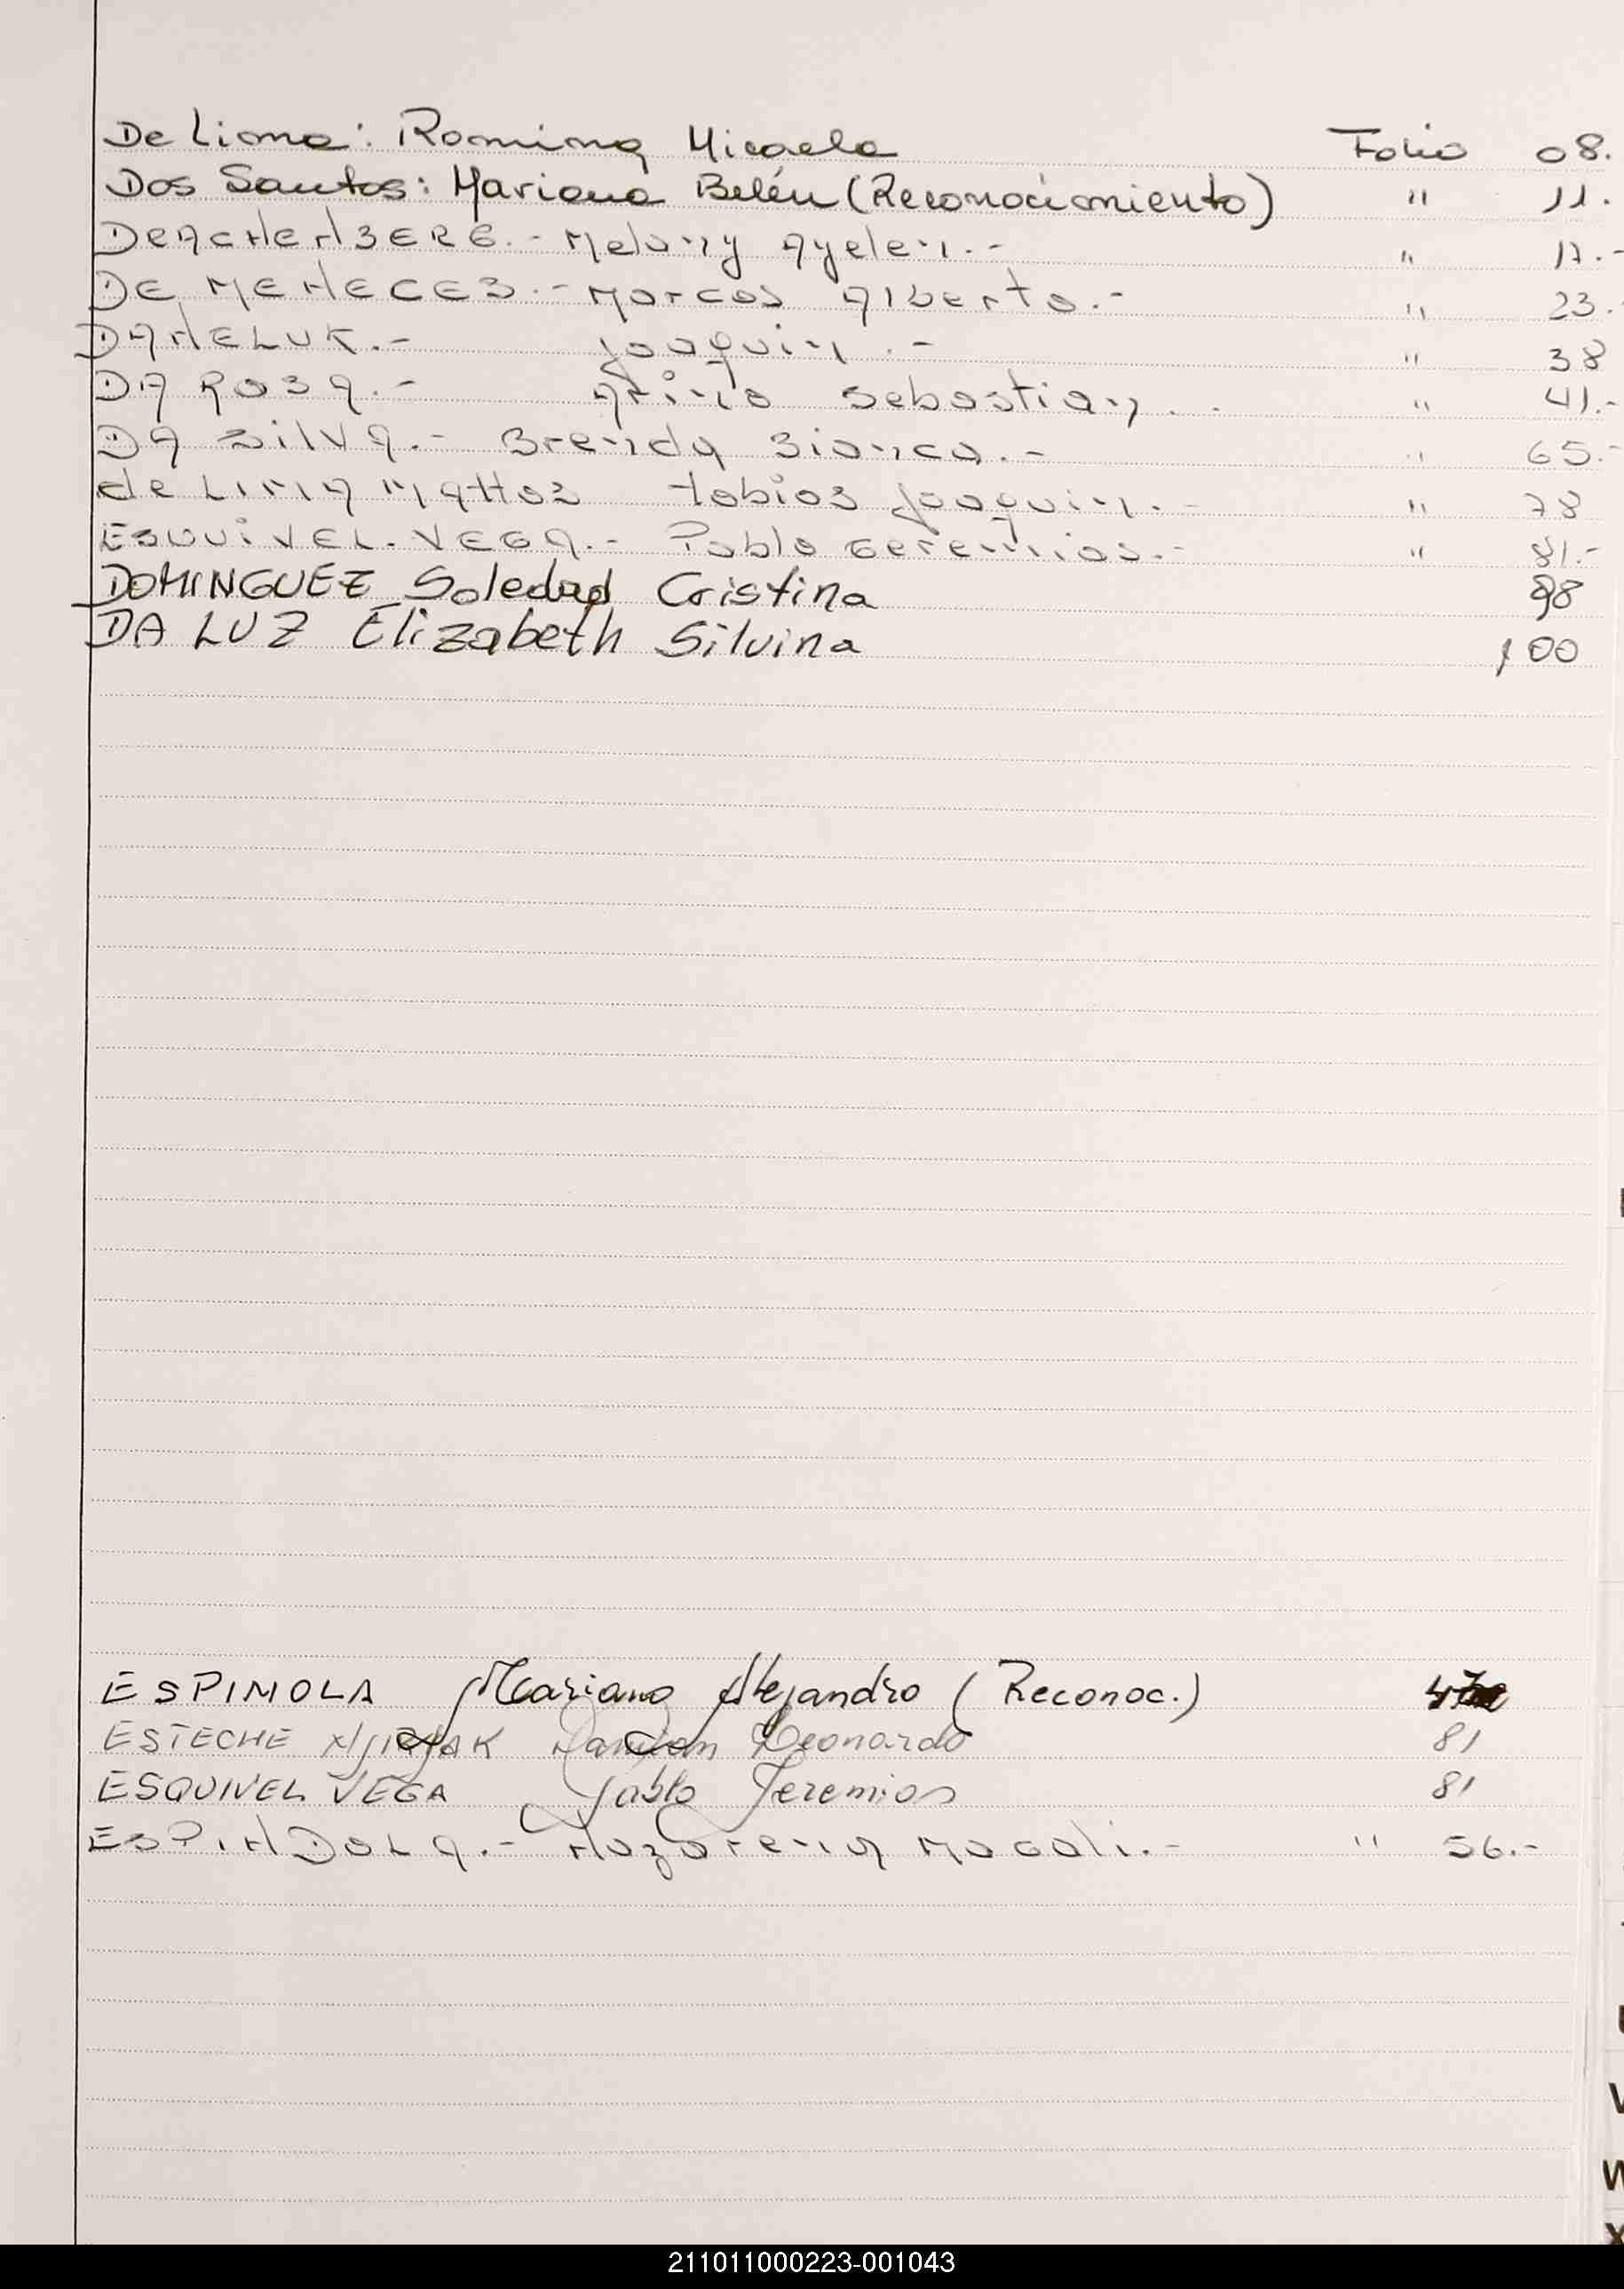 De Lima: Romina Micaela Folio 08.
Dos Santos: Mariana Belén (Reconocimiento) " 11.
Melany Ayelen.- " 17.-
DE MENECES.- Marcos Alberto.- " 23.
DANELUK.- Joaquin.- " 38
DA ROSA.- Sebastian. " 41.-
DA SILVA.- Brenda Bianca.- " 65.-
de LIMA MATTOS Tobias Joaquin.- " 78
ESQUIVEL.VEGA.- Pablo Geremias.- " 81.-
DOMINGUEZ Soledad Cristina 98
DA LUZ Elizabeth Silvina 100
ESPINOLA Mariano Alejandro (Reconoc.)
ESTECHE Damian Leonardo 81
ESQUIVEL VEGA Pablo Jeremias 81
ESPINDOLA.- Nazarena Magali.- " 56.-
211011000223-001043